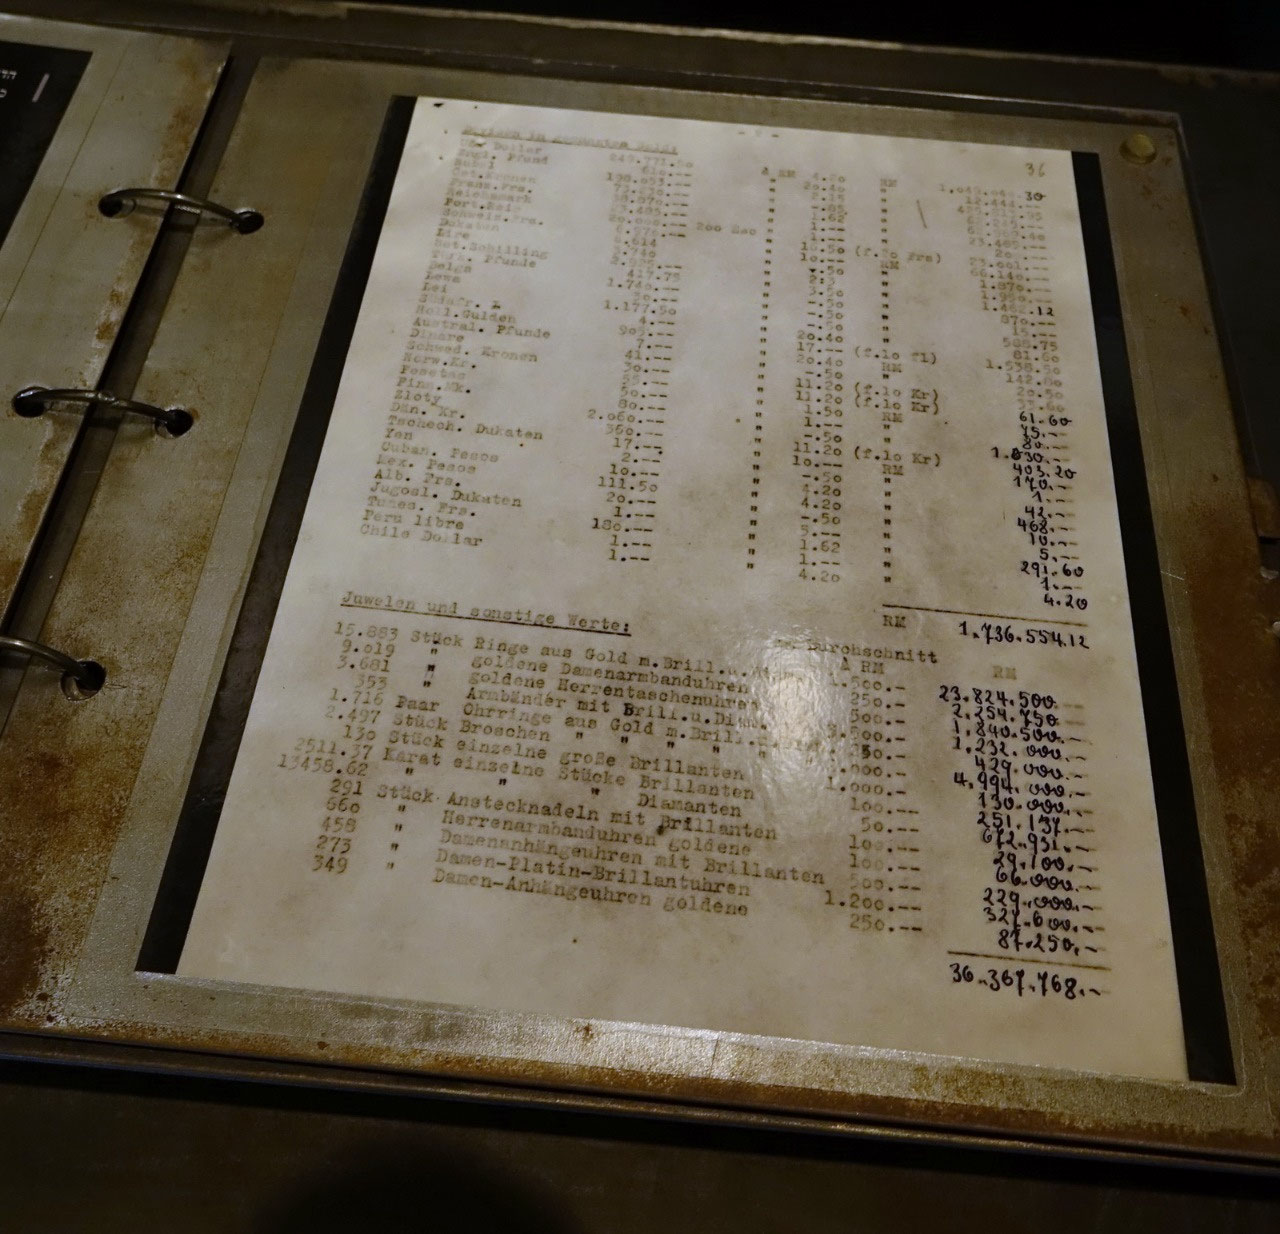 36
Devisen in gemünzten Gold:
USA Dollar 249.771.50 à RM 4.20 RM 1.049.040.30
Engl. Pfund 610.-- " 20.40 " 12.444.--
Rubel 198.053.-- " 2.15 " 425.813.95
Öst.Kronen " -.85 "
Franz.Frs. 38.870.-- " 1.62 "
Reichsmark 23.485.-- " 1.-- " 23.485.--
Port.Reis 20.000.-- 200 Esc " " 20.--
Schweiz.Frs. (f.10 Frs) 23.661.--
Dokaten 6.614 " 10.-- RM 66.140.--
Lire 3.740 " -.50 " 1.870.--
Öst.Schilling " 1.950.--
Türk. Pfunde 417.75 " 3.50 " 1.462.12
Belga 1.740.-- " -.50 " 870.--
Lewa 30.-- " -.50 " 15.--
Lei 1.177.50 " -.50 " 588.75
Südafr. £ 4.-- " 20.40 " 81.60
Holl.Gulden 905.-- " 17.-- (f.10 fl) 1.538.50
Austral. Pfunde 7.-- " 20.40 RM 142.80
Dinare 41.-- " -.50 " 20.50
Schwed. Kronen 30.-- " 11.20 (f.10 Kr) 33.60
Norw.Kr. 55.-- " 11.20 (f.10 Kr) 61.60
Pesetas 50.-- " 1.50 RM 75.--
Finn.Mk. 80.-- " 1.-- " 80.--
Zloty 2.060.-- " -.50 " 1.030.--
Dän. Kr. 360.-- " 11.20 (f.10 Kr) 403.20
Tschech. Dukaten 17.-- " 10.-- RM 170.--
Yen 2.-- " -.50 " 1.--
Cuban. Pesos 10.-- " 4.20 " 42.--
Mex. Pesos 111.50 " 4.20 " 468.--
Alb. Frs. 20.-- " -.50 " 10.--
Jugosl. Dukaten 1.-- " 5.-- " 5.--
Tunes. Frs. 180.-- " 1.62 " 291.60
Peru libre 1.-- " 1.-- " 1.--
Chile Dollar 1.-- " 4.20 " 4.20
RM 1.736.554.12
Juwelen und sonstige Werte:
Durchschnitt
à RM RM
15.883 Stück Ringe aus Gold m.Brill.u. 1.500.- 23.824.500.--
9.019 " goldene Damenarmbanduhren 250.- 2.254.750.--
3.681 " goldene Herrentaschenuhren 500.-- 1.840.500.--
353 " Armbänder mit Brill.u.Diam. 3.500.-- 1.232.000.--
1.716 Paar Ohrringe aus Gold m.Brill. 250.-- 429.000.--
2.497 Stück Broschen " " " " " 4.994.000.--
130 Stück einzelne große Brillanten 1.000.- 130.000.--
2511.37 Karat einzelne Stücke Brillanten 100.-- 251.137.--
13458.62 " " " Diamanten 50.-- 672.931.--
291 Stück Anstecknadeln mit Brillanten 100.-- 29.100.--
660 " Herrenarmbanduhren goldene 100.-- 66.000.--
458 " Damenanhängeuhren mit Brillanten 500.-- 229.000.--
273 " Damen-Platin-Brillantuhren 1.200.-- 327.600.--
349 " Damen-Anhängeuhren goldene 250.-- 87.250.--
36.367.768.--